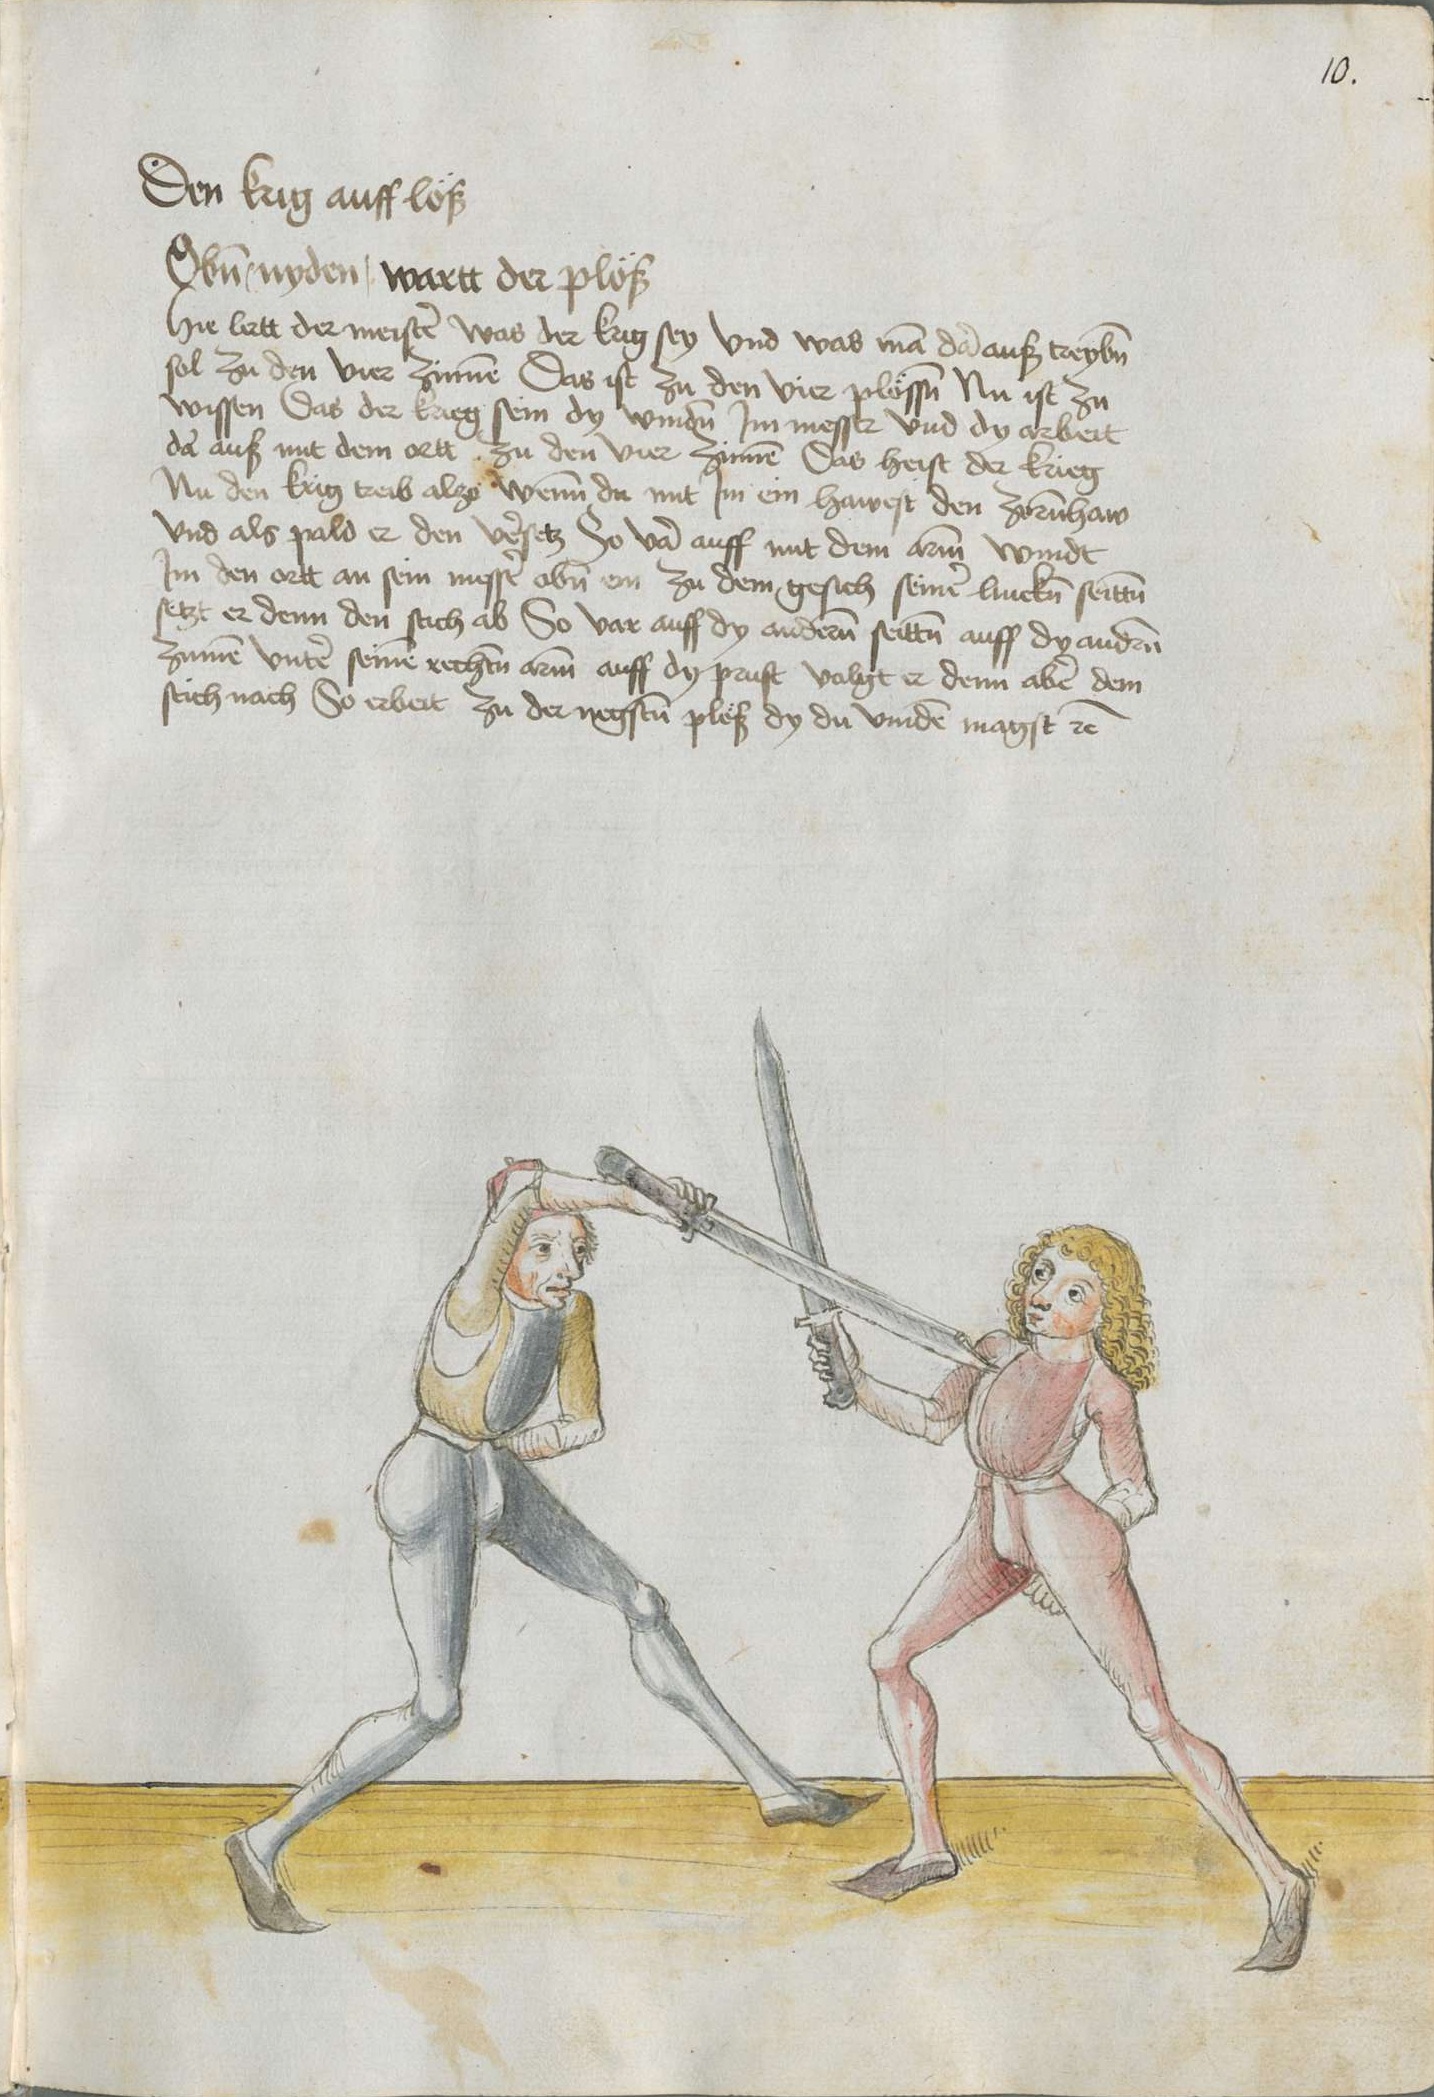 10.
Den krig auff löß
Obn̄ / nyden / wartt der plöß
Hie lertt der meistē was der krig sey Vnd was mā dar̄ auß treybn̄
sol zu den vier zinnē Das ist zu den vier plössn̄ Nu ist zu
wissen Das der krieg sein dy windn̄ Im messer Vnd dy arbeit
dar̄ auß mit dem ortt zu den vier zinnē Das heist der krieg
Nu den krig treib alzo Wenn̄ du mit Im ein hawest den zorn̄haw
Vnd als pald er den ver̄setz So var̄ auff mit dem arm̄ windt
Im den ortt an sein messer̄ obn̄ ein zu dem gesich seiner̄ linckn̄ seittn̄
setzt er denn den stich ab So var auff dy andern̄ seittn̄ auff dy andrn̄
zinnē vnter̄ seinē rechtn̄ arm̄ auff dy prust volgt er denn aber̄ dem
stich nach So erbeit zu der negstn̄ plöß dy du vindē magst rc̄